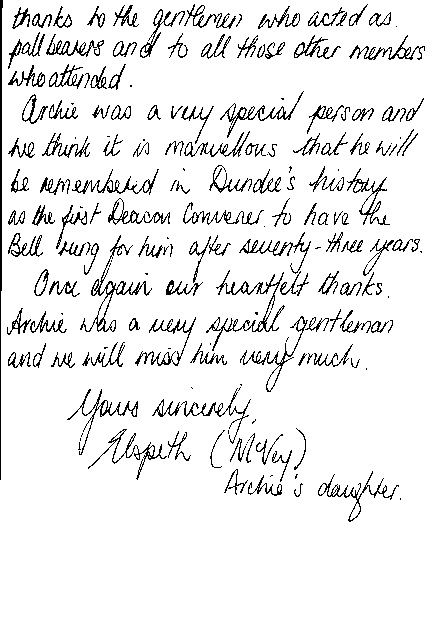 thanks to the gentlemen who acted as
pall bearers and to all those other members
who attended.
Archie was a very special person and
we think it is marvellous that he will
be remembered in Dundee's history
as the first Deacon Convener to have the
Bell rung for him after seventy-three years.
Once again our heartfelt thanks.
Archie was a very special gentleman
and we will miss him very much.
Yours sincerely,
Elspeth (McVey)
Archie's daughter.